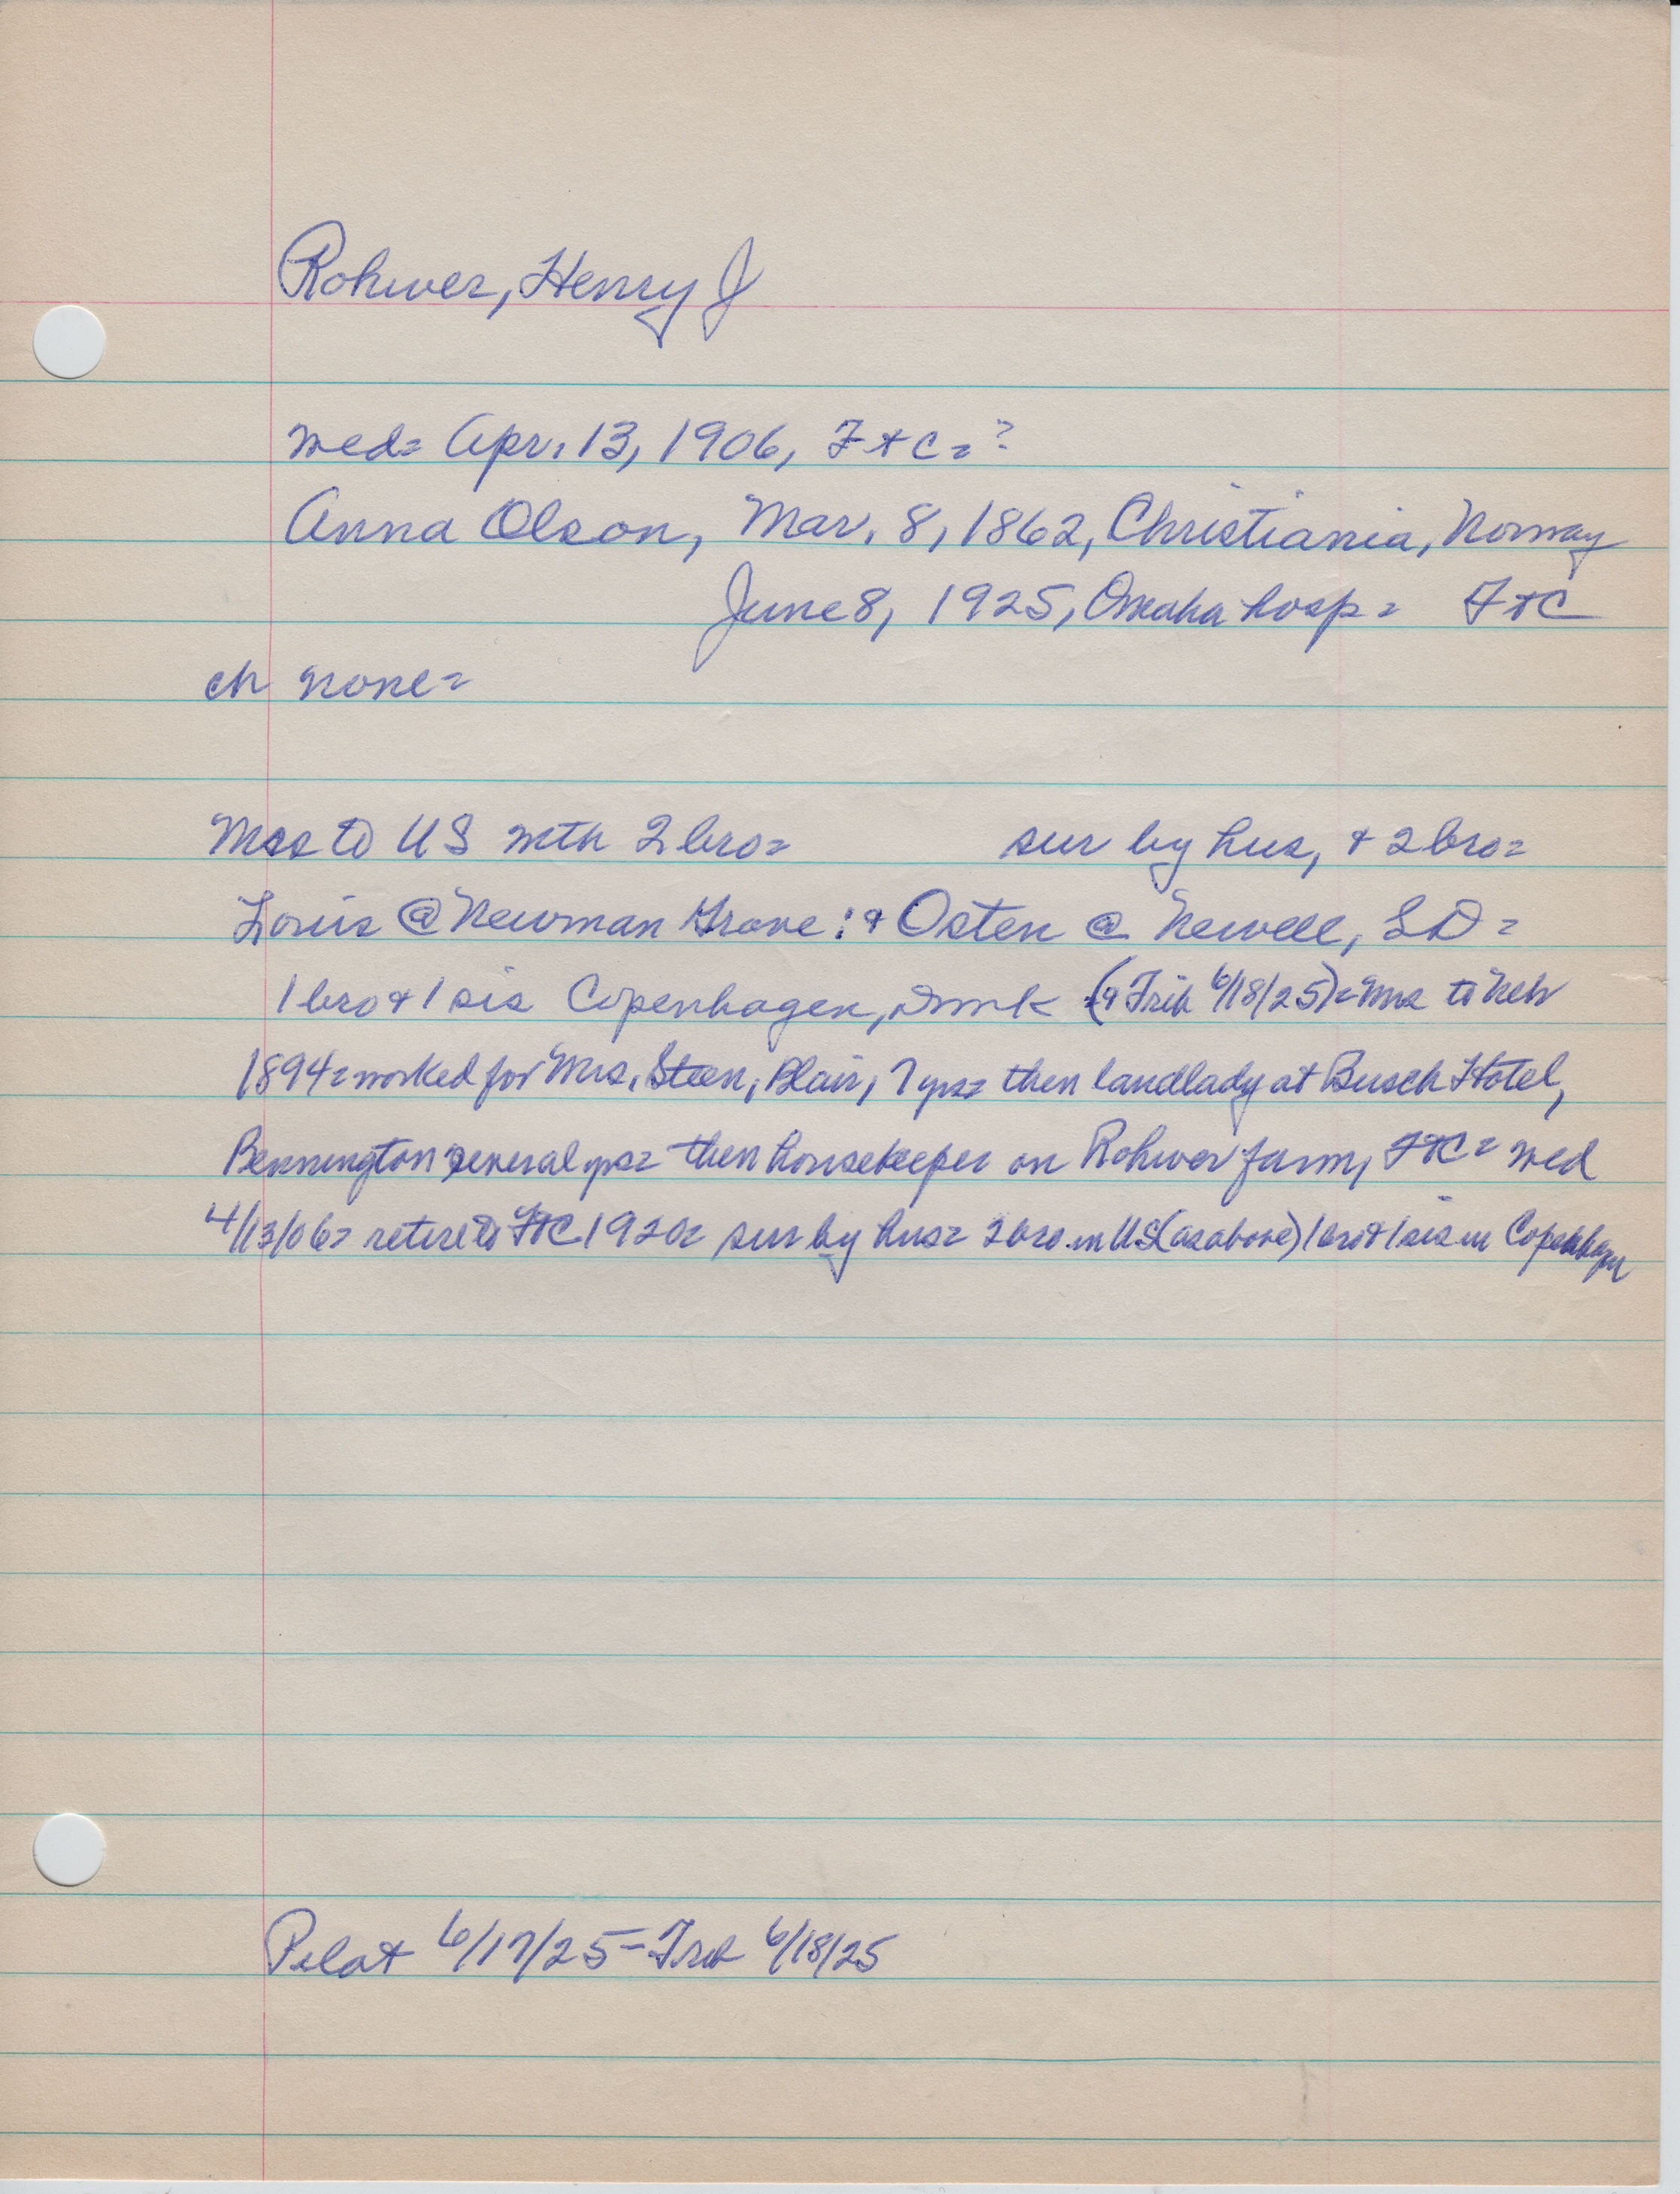 Rohwer, Henry J
wed= Apr. 13, 1906, Ft C=?
Anna Olson, Mar. 8, 1862, Christiania, Norway
June 8, 1925, Omaha hosp= Ft C
ch none=
Mrs to US with 2 bro= sur by hus, + 2 bro=
Louis @ Newman Grove: & Osten @ Newell, SD=
1 bro + 1 sis Copenhagen, Dmk (Trib 6/18/25)= Mrs to Neb
1894= worked for Mrs. Steen, Blair, 7 yrs= then landlady at Busch Hotel,
Bennington several yrs= then housekeeper on Rohwer farm, FtC= wed
4/13/06= retired to FtC 1920= sur by hus= 2 bro in US (as above) 1 bro + 1 sis in Copenhagen
Pilot 6/17/25 - Trib 6/18/25